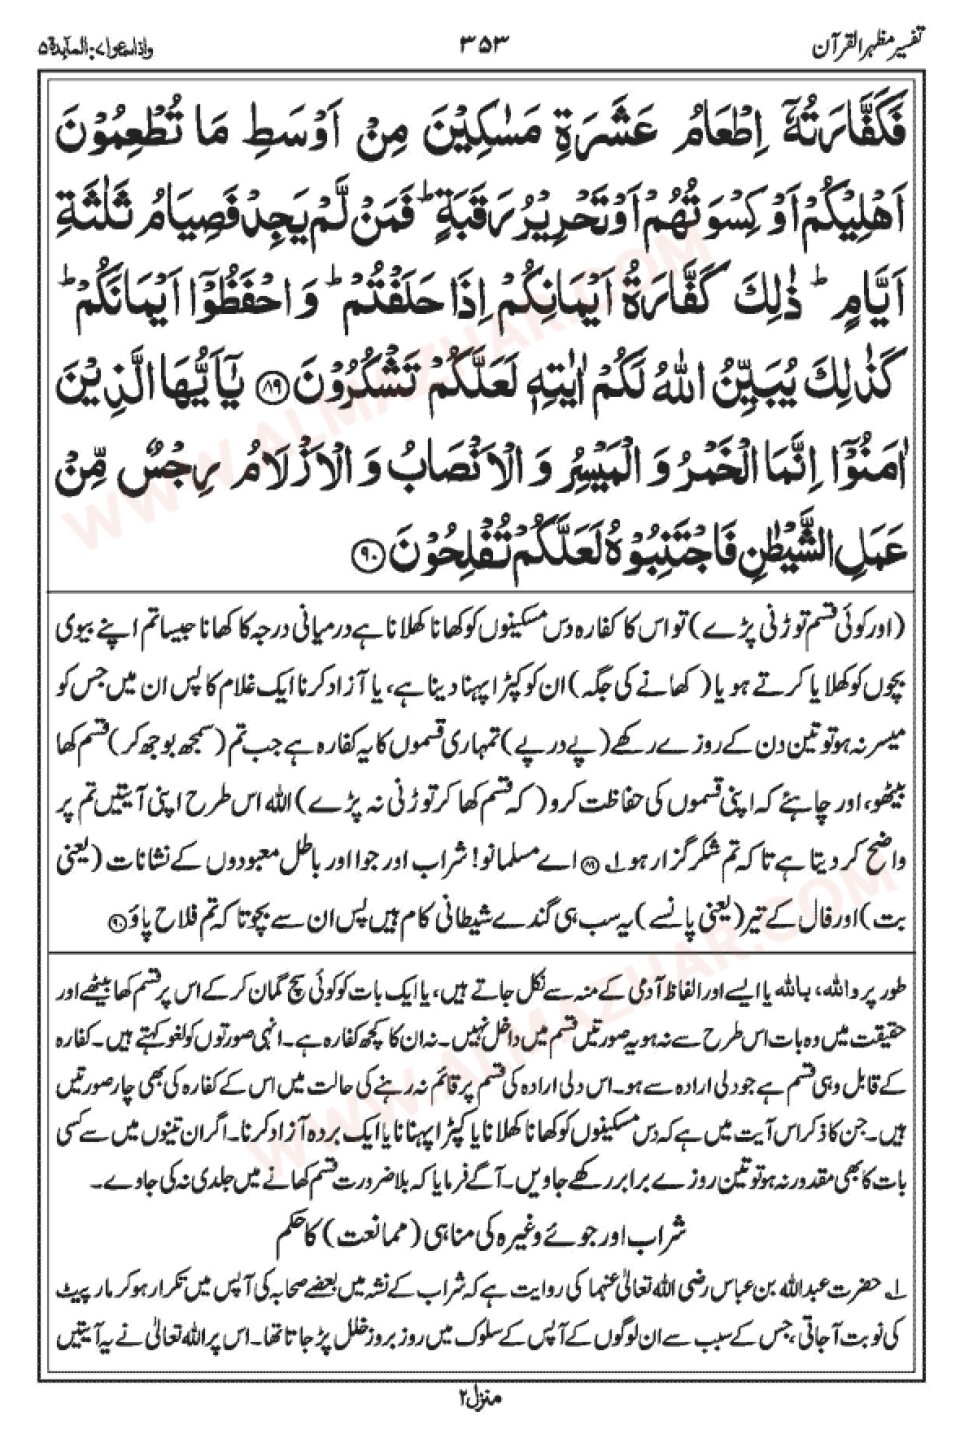 تفسیر مظہر القرآن
۳۵۳
واذاسمعوا۷: المآئدة۵
فَكَفَّارَتُهٗۤ اِطْعَامُ عَشَرَةِ مَسٰكِيْنَ مِنْ اَوْسَطِ مَا تُطْعِمُوْنَ
اَهْلِيْكُمْ اَوْ كِسْوَتُهُمْ اَوْ تَحْرِيْرُ رَقَبَةٍ ؕ فَمَنْ لَّمْ يَجِدْ فَصِيَامُ ثَلٰثَةِ
اَيَّامٍ ؕ ذٰلِكَ كَفَّارَةُ اَيْمَانِكُمْ اِذَا حَلَفْتُمْ ؕ وَ احْفَظُوْۤا اَيْمَانَكُمْ ؕ
كَذٰلِكَ يُبَيِّنُ اللّٰهُ لَكُمْ اٰيٰتِهٖ لَعَلَّكُمْ تَشْكُرُوْنَ ۸۹ يٰۤاَيُّهَا الَّذِيْنَ
اٰمَنُوْۤا اِنَّمَا الْخَمْرُ وَ الْمَيْسِرُ وَ الْاَنْصَابُ وَ الْاَزْلَامُ رِجْسٌ مِّنْ
عَمَلِ الشَّيْطٰنِ فَاجْتَنِبُوْهُ لَعَلَّكُمْ تُفْلِحُوْنَ ۹۰
(اور کوئی قسم توڑنی پڑے) تو اس کا کفارہ دس مسکینوں کو کھانا کھلانا ہے درمیانی درجہ کا کھانا جیسا تم اپنے بیوی
بچوں کو کھلایا کرتے ہو یا (کھانے کی جگہ) ان کو کپڑا پہنا دینا ہے، یا آزاد کرنا ایک غلام کا پس ان میں جس کو
میسر نہ ہو تو تین دن کے روزے رکھے (پے درپے) تمہاری قسموں کا یہ کفارہ ہے جب تم (سمجھ بوجھ کر) قسم کھا
بیٹھو، اور چاہئے کہ اپنی قسموں کی حفاظت کرو (کہ قسم کھا کر توڑنی نہ پڑے) اللہ اس طرح اپنی آیتیں تم پر
واضح کر دیتا ہے تاکہ تم شکر گزار ہو ۱؎ ۸۹ اے مسلمانو! شراب اور جوا اور باطل معبودوں کے نشانات (یعنی
بت) اور فال کے تیر (یعنی پانسے) یہ سب ہی گندے شیطانی کام ہیں پس ان سے بچو تاکہ تم فلاح پاؤ ۹۰
طور پر واللہ، باللہ یا ایسے اور الفاظ آدمی کے منہ سے نکل جاتے ہیں، یا ایک بات کو کوئی سچ گمان کر کے اس پر قسم کھا بیٹھے اور
حقیقت میں وہ بات اس طرح سے نہ ہو یہ صورتیں قسم میں داخل نہیں۔ نہ ان کا کچھ کفارہ ہے۔ انہی صورتوں کو لغو کہتے ہیں۔ کفارہ
کے قابل وہی قسم ہے جو دلی ارادہ سے ہو۔ اس دلی ارادہ کی قسم پر قائم نہ رہنے کی حالت میں اس کے کفارہ کی بھی چار صورتیں
ہیں۔ جن کا ذکر اس آیت میں ہے کہ دس مسکینوں کو کھانا کھلانا یا کپڑا پہنانا یا ایک بردہ آزاد کرنا۔ اگر ان تینوں میں سے کسی
بات کا بھی مقدور نہ ہو تو تین روزے برابر رکھے جاویں۔ آگے فرمایا کہ بلا ضرورت قسم کھانے میں جلدی نہ کی جاوے۔
شراب اور جوئے وغیرہ کی مناہی (ممانعت) کا حکم
۱؎ حضرت عبداللہ بن عباس رضی اللہ تعالیٰ عنہما کی روایت ہے کہ شراب کے نشہ میں بعضے صحابہ کی آپس میں تکرار ہو کر مار پیٹ
کی نوبت آجاتی، جس کے سبب سے ان لوگوں کے آپس کے سلوک میں روز بروز خلل پڑ جاتا تھا۔ اس پر اللہ تعالیٰ نے یہ آیتیں
منزل۲
WWW.ALMAZHAR.COM
WWW.ALMAZHAR.COM